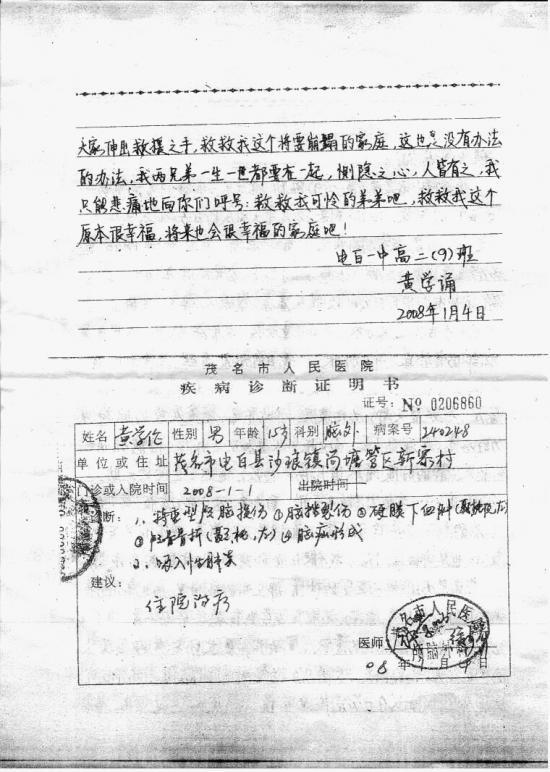 大家伸出救援之手，救救我这个将要崩塌的家庭，这也是没有办法
的办法，我两兄弟一生一世都要在一起，恻隐之心，人皆有之，我
只能悲痛地向你们呼号：救救我可怜的弟弟吧，救救我这个
原本很幸福，将来也会很幸福的家庭吧！
电白一中高二(9)班
黄学诵
2008年1月4日
茂名市人民医院
疾病诊断证明书
证号：№ 0206860
姓名 黄学伦 性别 男 年龄 15岁 科别 脑外 病案号 240248
单位或住址 茂名市电白县沙琅镇尚塘管区新寨村
门诊或入院时间 2008-1-1 出院时间
诊断：1、特重型颅脑损伤 ①脑挫裂伤 ②硬膜下血肿
③颅骨骨折 ④脑疝形成
2、吸入性肺炎
建议：
住院治疗
市人民医
医师
08年 月 日